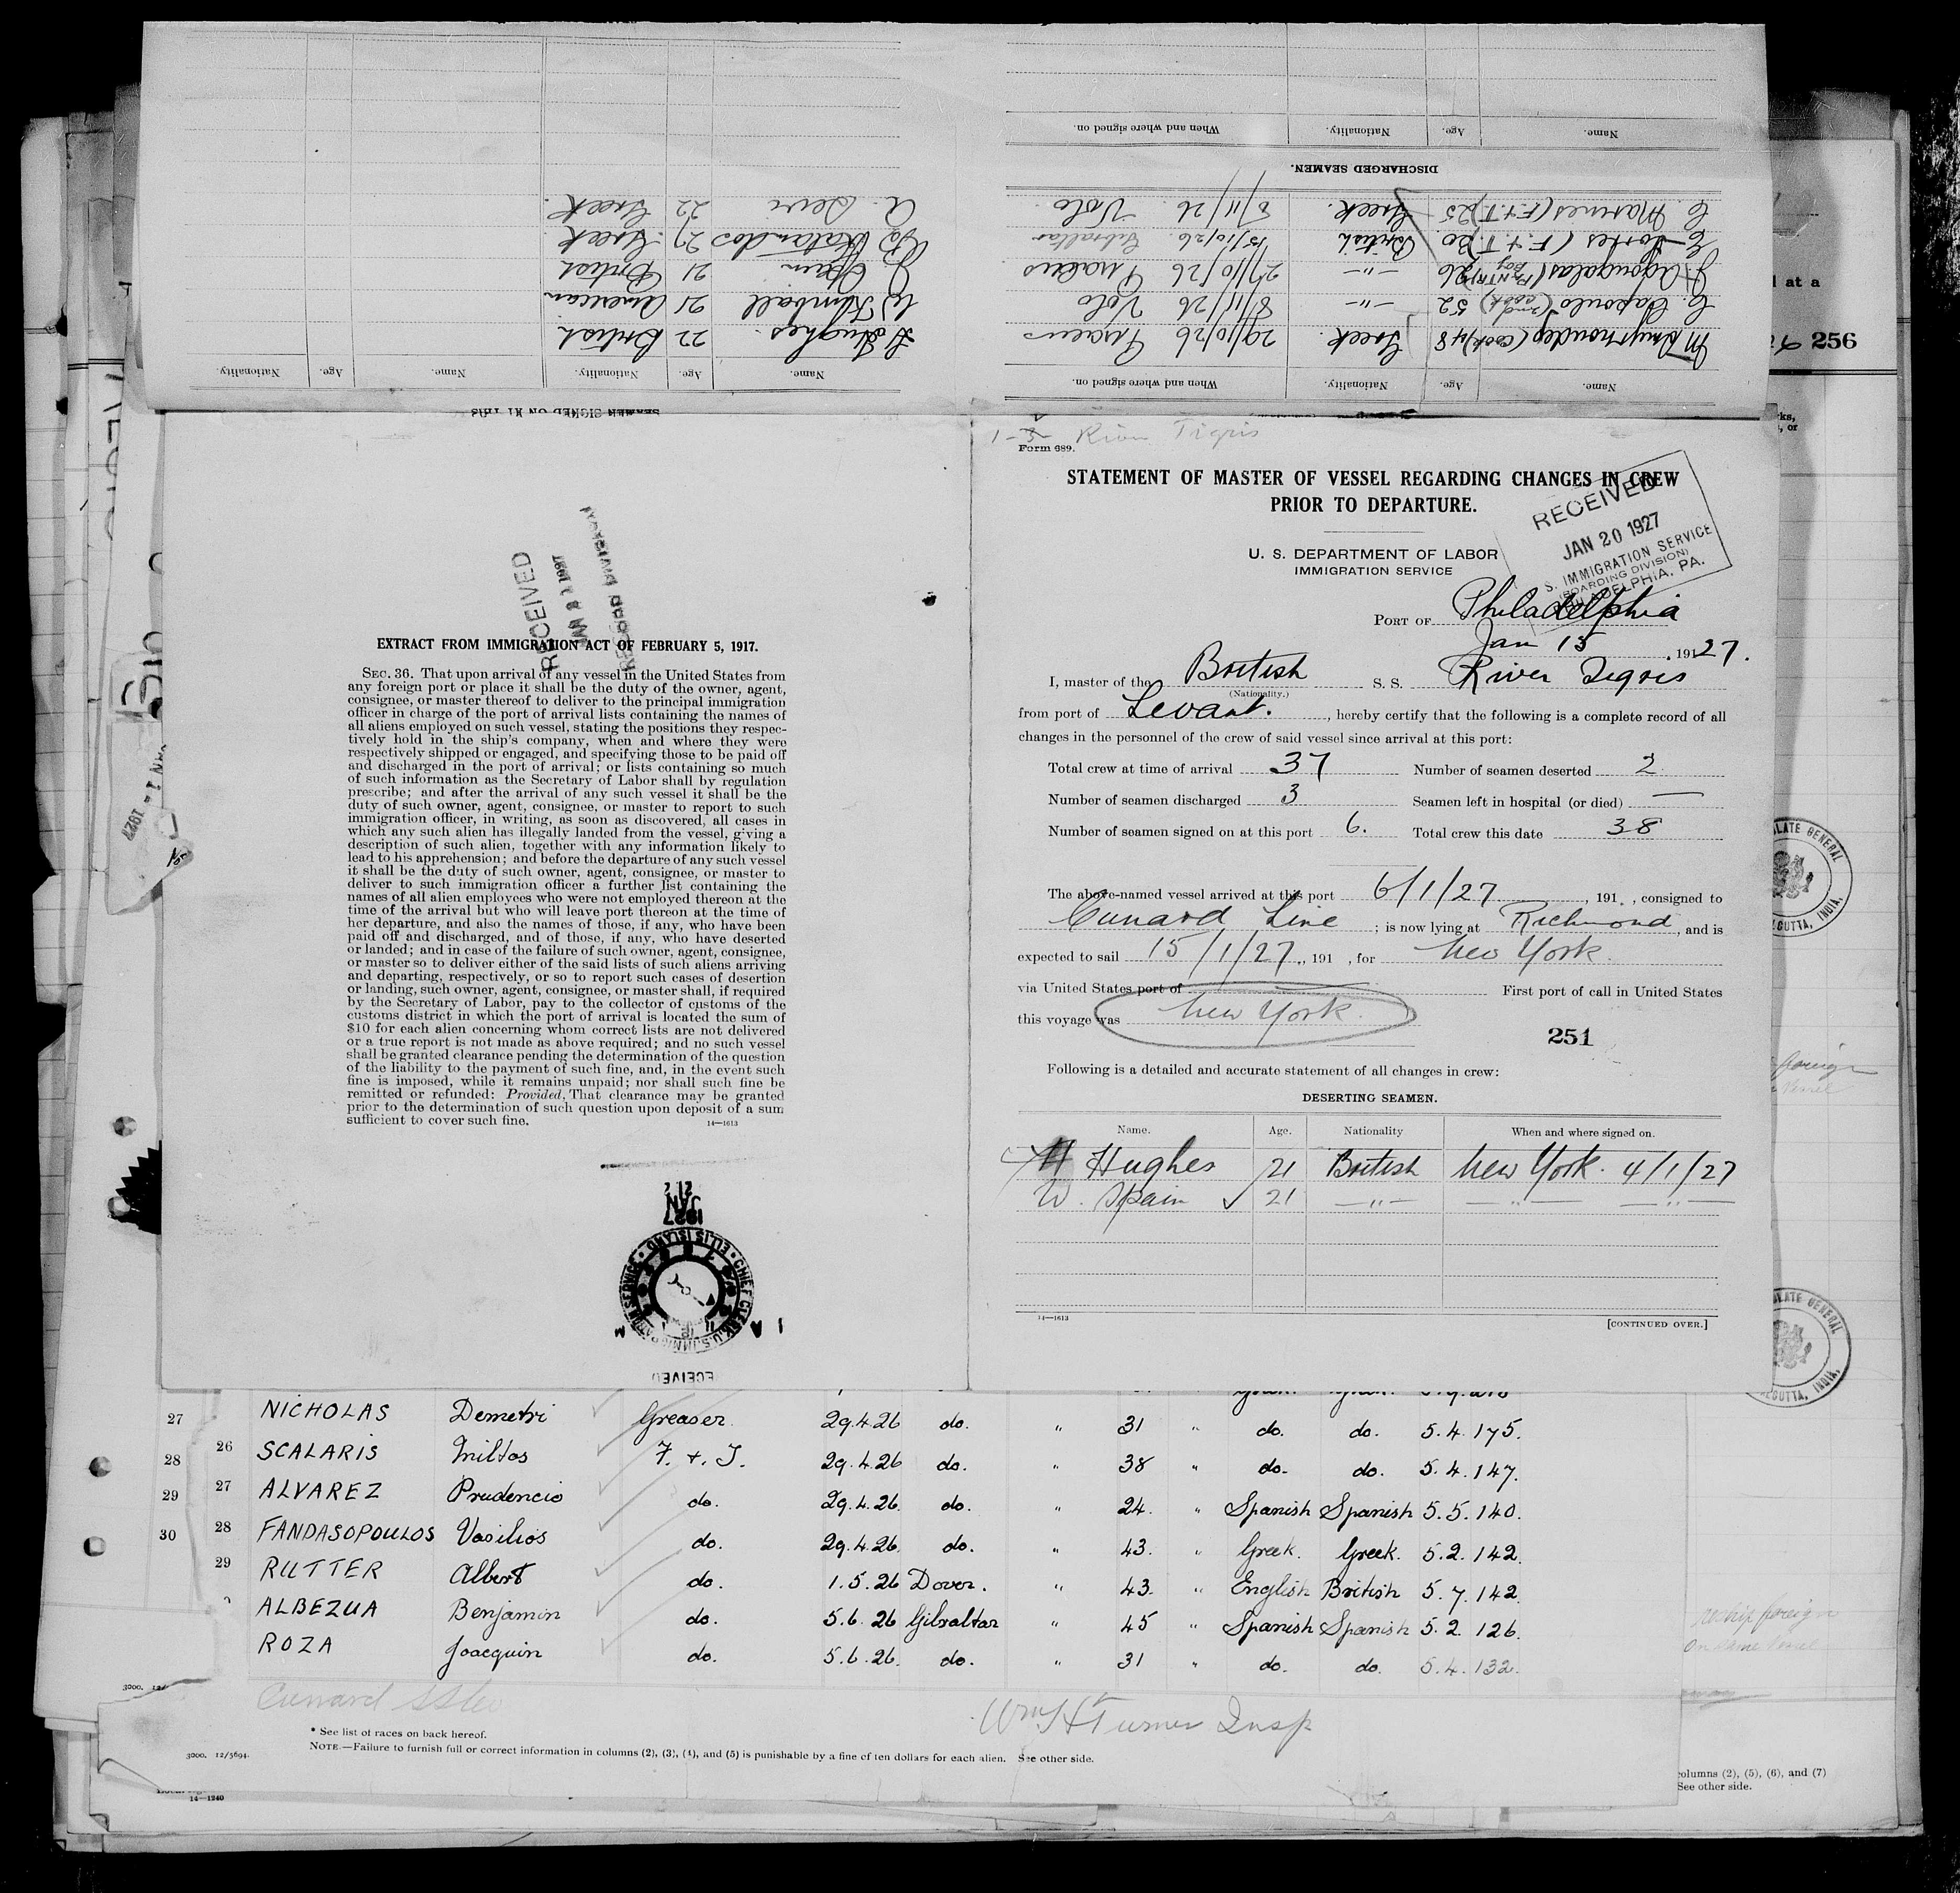 1-3 River Tigris
Form 689.
STATEMENT OF MASTER OF VESSEL REGARDING CHANGES IN CREW
PRIOR TO DEPARTURE.
U. S. DEPARTMENT OF LABOR
IMMIGRATION SERVICE
RECEIVED
JAN 20 1927
S. IMMIGRATION SERVICE
(BOARDING DIVISION)
PHILADELPHIA, PA.
PORT OF Philadelphia
Jan 15, 191 27.
I, master of the British S. S. River Tigris
(Nationality.)
from port of Levant., hereby certify that the following is a complete record of all
changes in the personnel of the crew of said vessel since arrival at this port:
Total crew at time of arrival 37 Number of seamen deserted 2
Number of seamen discharged 3 Seamen left in hospital (or died) —
Number of seamen signed on at this port 6. Total crew this date 38
The above-named vessel arrived at this port 6/1/27, 191 , consigned to
Cunard Line; is now lying at Richmond, and is
expected to sail 15/1/27., 191 , for New York.
via United States port of First port of call in United States
this voyage was New York.
251
Following is a detailed and accurate statement of all changes in crew:
DESERTING SEAMEN.
Name. Age. Nationality When and where signed on.
H Hughes 21 British New York. 4/1/27
W. Spain 21 —"— —"— —"—
14—1613 [CONTINUED OVER.]
EXTRACT FROM IMMIGRATION ACT OF FEBRUARY 5, 1917.
SEC. 36. That upon arrival of any vessel in the United States from
any foreign port or place it shall be the duty of the owner, agent,
consignee, or master thereof to deliver to the principal immigration
officer in charge of the port of arrival lists containing the names of
all aliens employed on such vessel, stating the positions they respec-
tively hold in the ship's company, when and where they were
respectively shipped or engaged, and specifying those to be paid off
and discharged in the port of arrival; or lists containing so much
of such information as the Secretary of Labor shall by regulation
prescribe; and after the arrival of any such vessel it shall be the
duty of such owner, agent, consignee, or master to report to such
immigration officer, in writing, as soon as discovered, all cases in
which any such alien has illegally landed from the vessel, giving a
description of such alien, together with any information likely to
lead to his apprehension; and before the departure of any such vessel
it shall be the duty of such owner, agent, consignee, or master to
deliver to such immigration officer a further list containing the
names of all alien employees who were not employed thereon at the
time of the arrival but who will leave port thereon at the time of
her departure, and also the names of those, if any, who have been
paid off and discharged, and of those, if any, who have deserted
or landed; and in case of the failure of such owner, agent, consignee,
or master so to deliver either of the said lists of such aliens arriving
and departing, respectively, or so to report such cases of desertion
or landing, such owner, agent, consignee, or master shall, if required
by the Secretary of Labor, pay to the collector of customs of the
customs district in which the port of arrival is located the sum of
$10 for each alien concerning whom correct lists are not delivered
or a true report is not made as above required; and no such vessel
shall be granted clearance pending the determination of the question
of the liability to the payment of such fine, and, in the event such
fine is imposed, while it remains unpaid; nor shall such fine be
remitted or refunded: Provided, That clearance may be granted
prior to the determination of such question upon deposit of a sum
sufficient to cover such fine.
14—1613
RECEIVED
RECORD DIVISION
JAN
1927
CHIEF CLERK, U.S. IMMIGRATION SERVICE • ELLIS ISLAND •
SEAMEN SIGNED ON AT THIS
Name. Age. Nationality. Name. Age. Nationality.
H Hughes. 22 British
W Kimball 21 American
J Spain 21 British
Katandos 27 Greek
A. Sevi 22 Greek.
Name. Age. Nationality. When and where signed on.
M Smyrnoudep (Cook) 48 Greek. 29/10/26 Piraeus
C. Capoulo (2nd Cook) 52 —"— 8/11/26 Volo
J. Agougalas (PANTRY BOY) 26 —"— 27/10/26 Piraeus
C. Tortes (F. & T.) 30 British 15/10/26 Gibraltar
C. Marines (F. & T.) 25 Greek. 8/11/26 Volo
DISCHARGED SEAMEN.
Name. Age. Nationality. When and where signed on.
d at a
256
27 NICHOLAS Demetri Greaser. 29.4.26 do. " 31 " do. do. 5.4.175.
28 26 SCALARIS Miltos F. & T. 29.4.26 do. " 38 " do. do. 5.4.147.
29 27 ALVAREZ Prudencio do. 29.4.26. do. " 24. " Spanish Spanish 5.5.140.
30 28 FANDASOPOULOS Vasilios do. 29.4.26. do. " 43. " Greek. Greek. 5.2.142.
29 RUTTER Albert do. 1.5.26 Dover. " 43. " English British 5.7.142.
ALBEZUA Benjamin do. 5.6.26 Gibraltar " 45 " Spanish Spanish 5.2.126.
ROZA Joacquin do. 5.6.26. do. " 31 " do. do. 5.4.132.
Wm H Turner Insp
* See list of races on back hereof.
3000. 12/5694. NOTE.—Failure to furnish full or correct information in columns (2), (3), (4), and (5) is punishable by a fine of ten dollars for each alien. See other side.
14—1240
columns (2), (5), (6), and (7)
See other side.
reship foreign
on same vessel